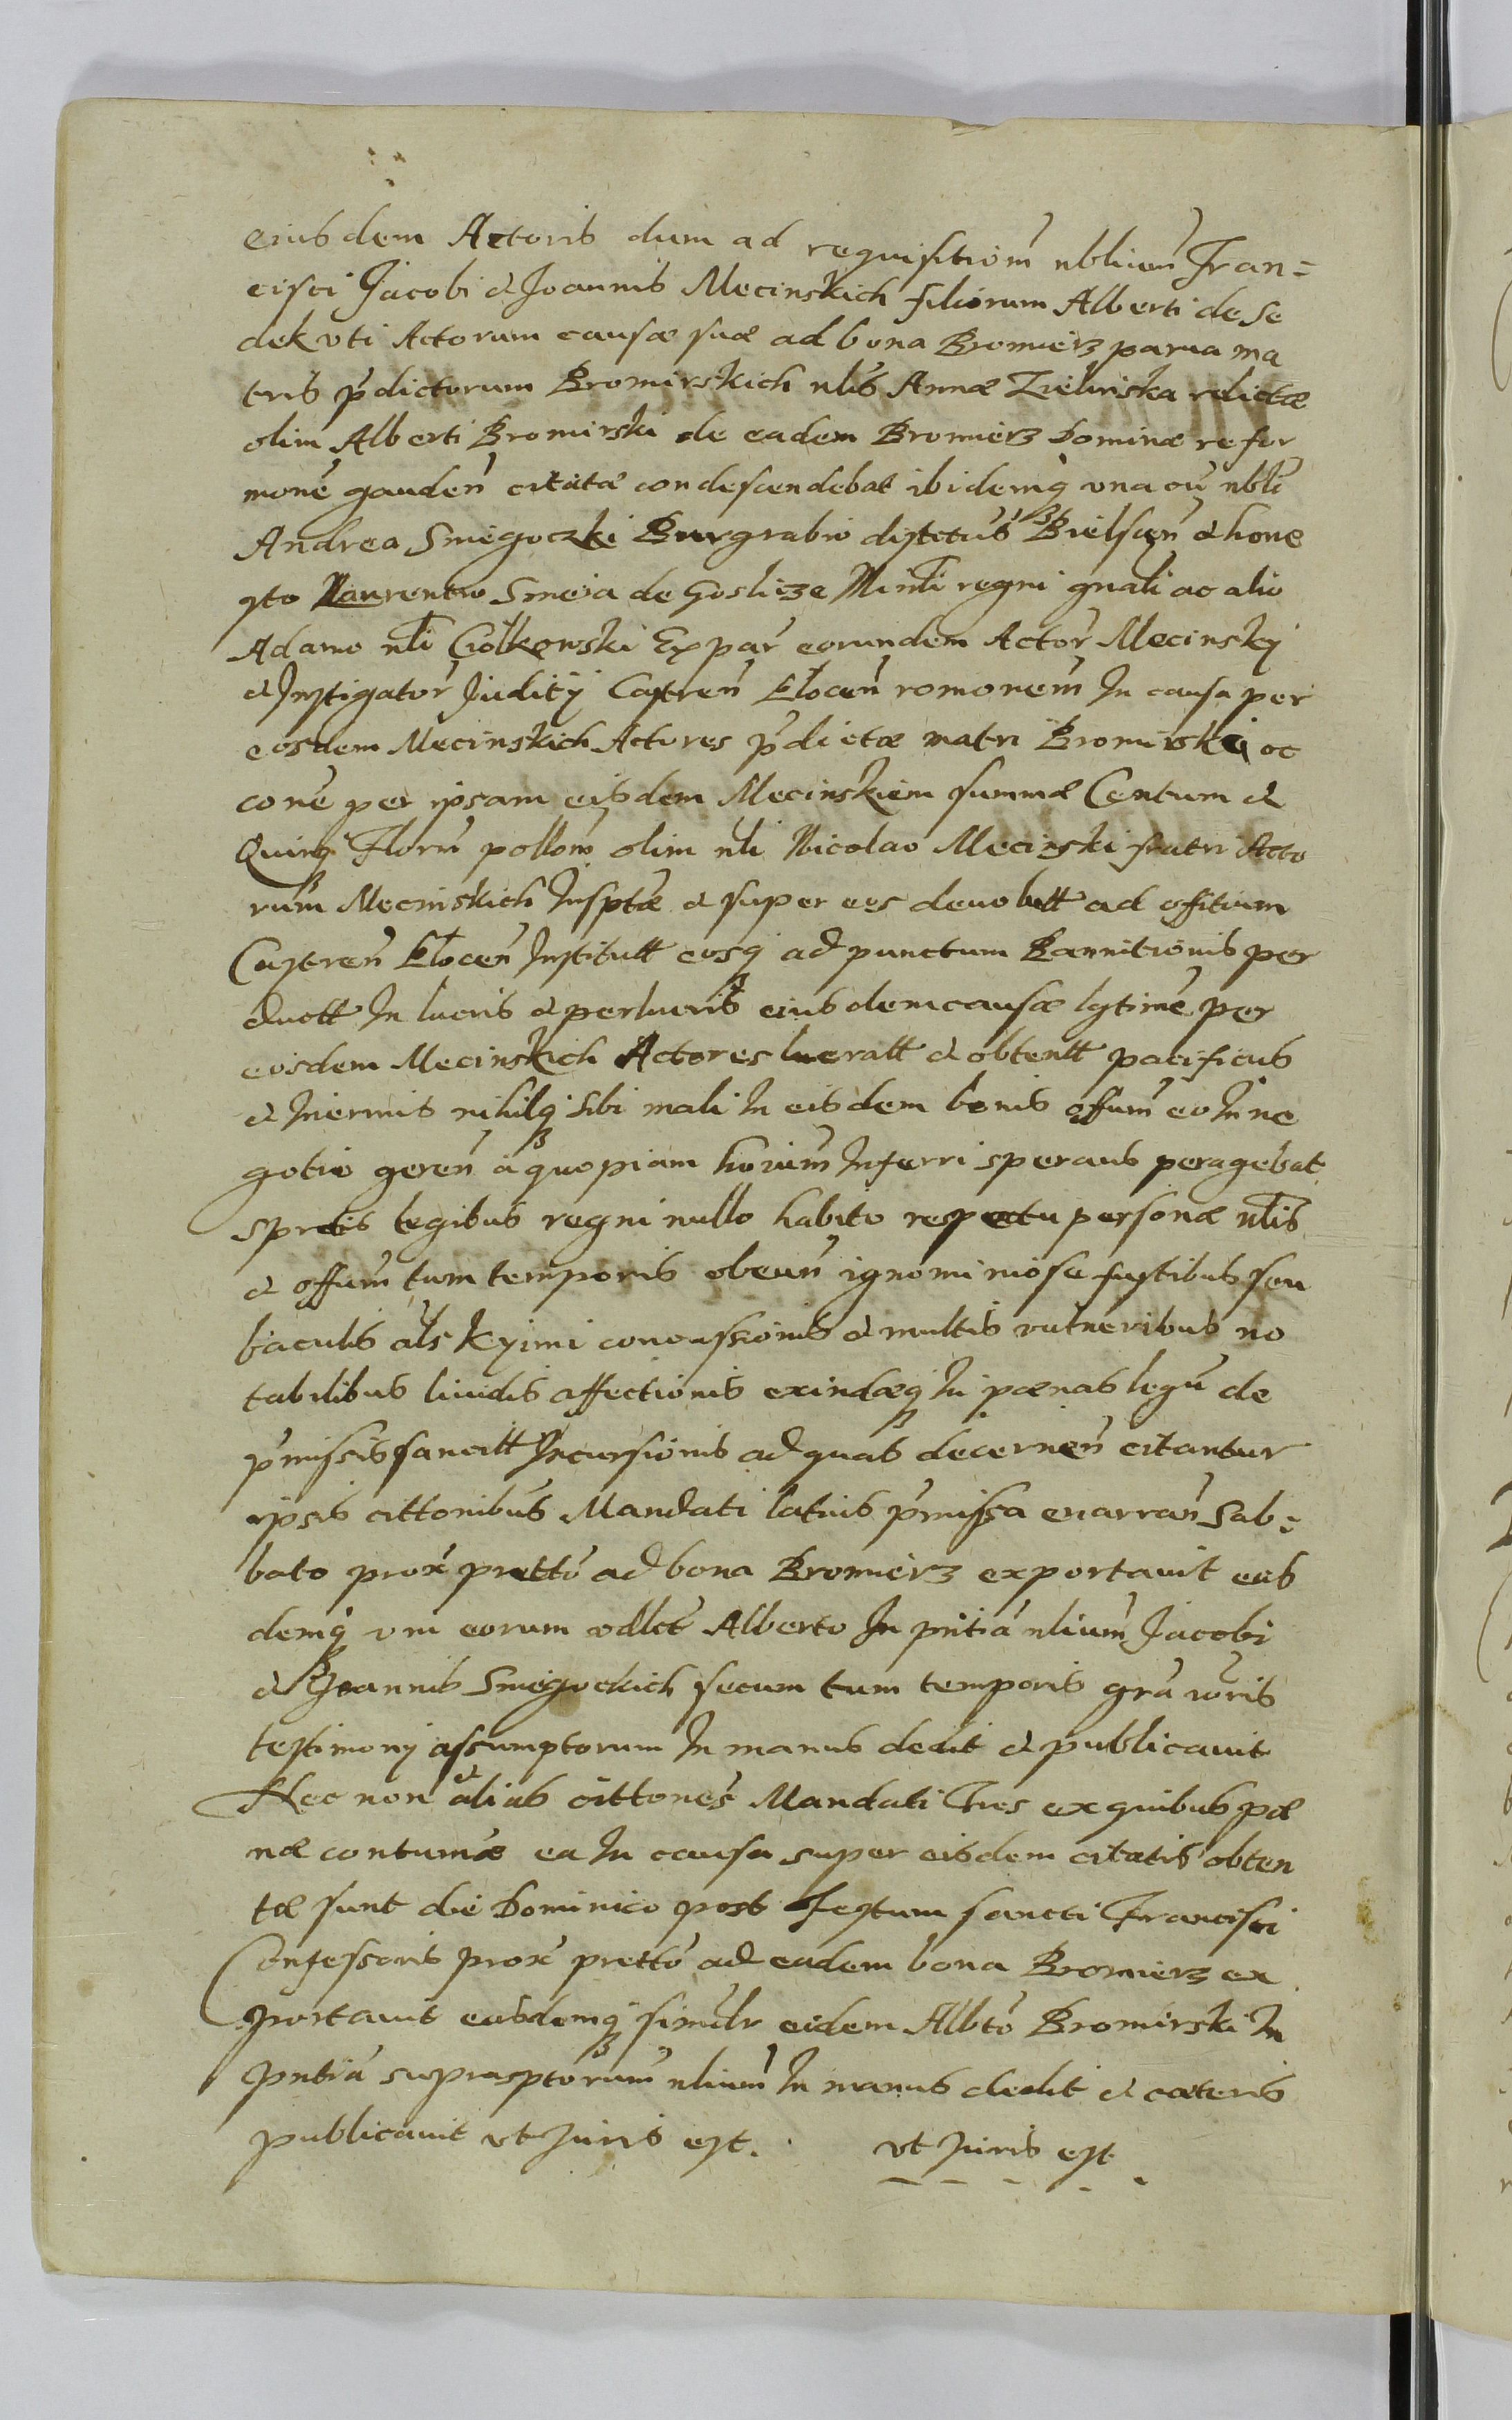 eiusdem Actoris dum ad requisitiom̃ nblium̃ Fran=
cisci Jacobi & Joannis Mecinskich filiorum Alberti de Se
dek vti Actorum causæ suæ ad bona Bromierz parua ma
tris p̃dictorum Bromirskich nlis Annæ Zielinska relictæ
olim Alberti Bromirski de eadem Bromierz Dominæ refor
mone͂ gauden͂ citatæ condescendebat ibidemq̃ vna cu͂ nbli
Andrea Smegoczki Burgrabio distctus Bielscen͂ & hone
sto Laurentio Smeia de Goslize Minli regni gnali ac alio
Adamo nli Ciołkowski Ex par͂ eorundem Actor͂ Mecinskj
& Instigator͂ Juditij Castren͂ Płocen͂ romonem͂ In causa per
eosdem Mecinskich Actores p̃dictæ matri Bromirskij oc
cone͂ per ipsam eisdem Mecinskiem summæ Centum &
Quinq̃ Floru͂ pollom͂ olim nli Nicolao Mecinski fratri Acto
rum͂ Mecinskich Insptæ & super eos deuolutt ad offitium
Castren͂ Płocen͂ Institutt eosq̃ ad punctum Bannitionis per
ductt In lucris & perlucris eiusdem causæ lgtime͂ per
eosdem Mecinskich Actores lucratt & obtentt pacificus
& Inermis nihilq̃ sibi mali In eisdem bonis offum͂ eo In ne
gotio geren͂ a quopiam horum͂ Inferri sperans peragebat
spretis legibus regni nullo habito respectu personæ nlis
& offum͂ tum temporis obeun͂ ignominiose fustibus seu
baculis als kyimi concussionis & multis vulneribus no
tabilibus liuidis affectionis exindæq̃ In pænas legu͂ de
p̃missis sancitt Incursionis ad quas decernen͂ citantur
ipsis cittonibus Mandati latius p̃missa enarran͂ Sab=
bato prox͂ pretto͂ ad bona Bromierz exportauit eas
demq̃ vni eorum vdlct Alberto In pntia͂ nlium͂ Jacobi
& Joannis Smegockich secum tum temporis gra͂ voris
testimonij assumptorum In manus dedit & publicauit
Nec non & alias cittones͂ Mandati Tres ex quibus pæ
næ contumæ ea In causa super eisdem citatis obten
tæ sunt die Dominico post Festum sancti Francisci
Confessoris prox͂ pretto͂ ad eadem bona Bromierz ex
portauit easdemq̃ similr eidem Albto͂ Bromirski In
pntia͂ suprasptorum͂ nlium͂ In manus dedit & cæteris
publicauit vt Juris est. vt Juris est